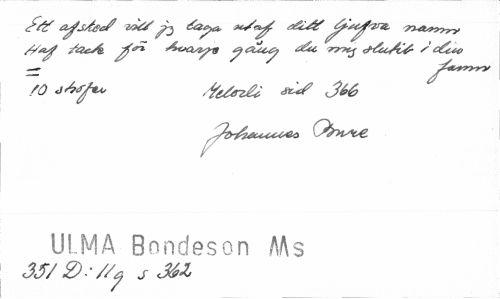 Ett afsked vill jg taga utaf ditt ljufva namn
Haf tack för hvarje gång du mig slutit i din
famn
=
10 strofer Melodi sid 366
Johannes Bure
ULMA Bondeson Ms
351 D:11g s 362